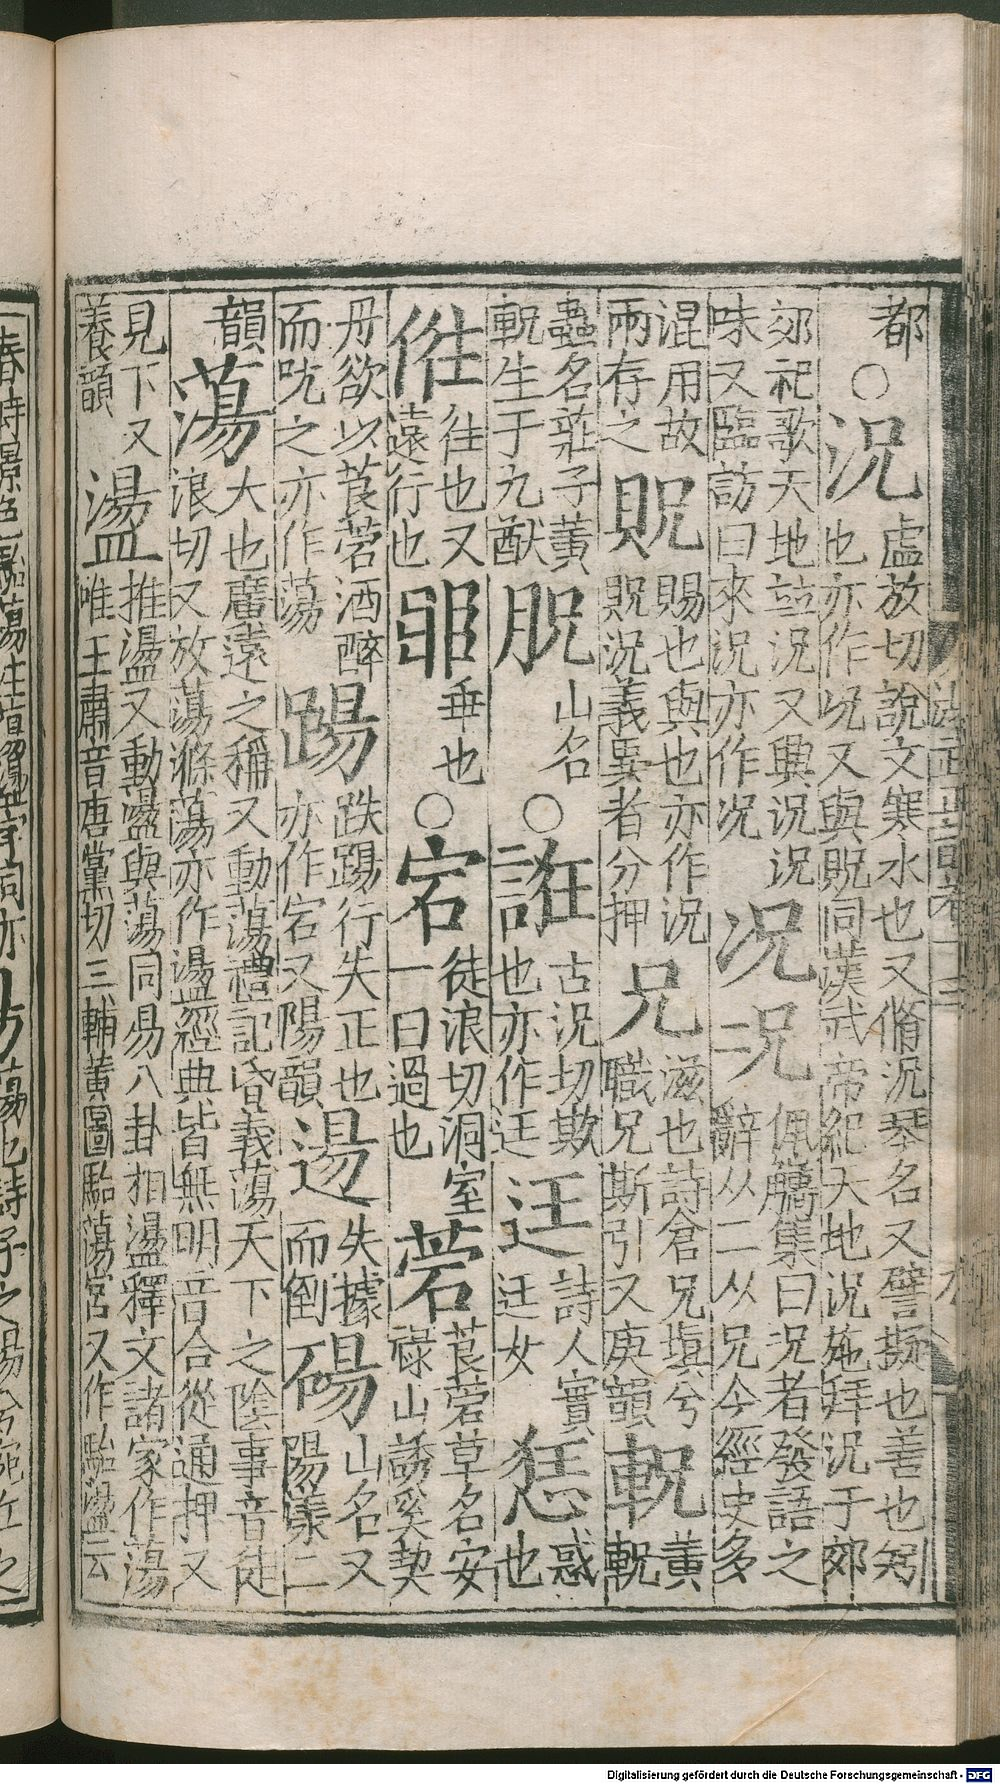 都○況虛放切說文寒水也又脩況琴名又譬擬也善也矧
也亦作况又與貺同漢武帝紀天地況施拜況于郊
郊祀歌天地竝況又興況況
味又臨訪曰來況亦作况
况况佩觿集曰況者發語之
辭从二从兄今經史多
混用故
兩存之
貺賜也與也亦作況
貺況義異者分押
兄滋也詩倉兄塡兮
職兄斯引又庚韻
軦黃
軦
蟲名莊子黃
軦生于九猷
山名
○誑古況切欺
也亦作迋
迋詩人實
迋女
惑
也
徃也又
遠行也
垂也
○宕徒浪切洞室
一曰過也
菪莨菪草名安
祿山誘奚契
丹欲以莨菪酒醉
而吭之亦作蕩
踼跌踼行失正也
亦作宕又陽韻
逿失據
而倒
碭山名又
陽漾二
韻蕩大也廣遠之稱又動蕩禮記昏義蕩天下之陰事音徒
浪切又放蕩滌蕩亦作盪經典皆無明音合從通押又
見下又
養韻
盪推盪又動盪與蕩同易八卦相盪釋文諸家作蕩
唯王肅音唐黨切三輔黃圖駘蕩宮又作駘盪云
Digitalisierung gefördert durch die Deutsche Forschungsgemeinschaft - DFG